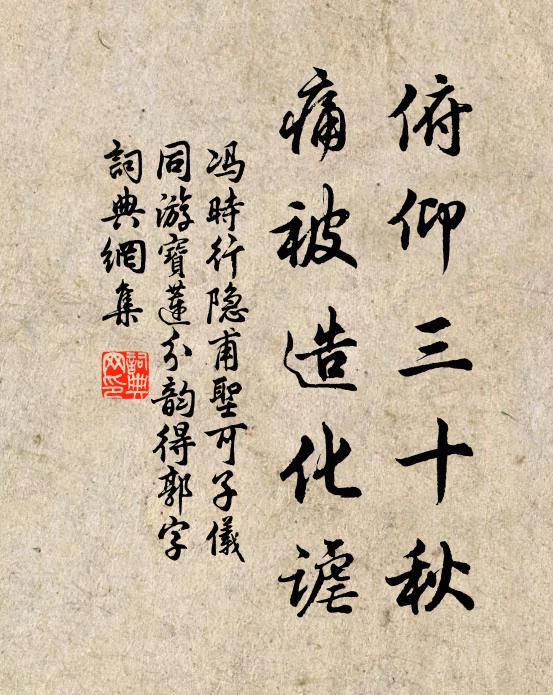 俯仰三十秋
痛被造化謔
冯時行隐甫聖可子儀
同游寶蓮分韵得郭字
詞典網集
詞典网印